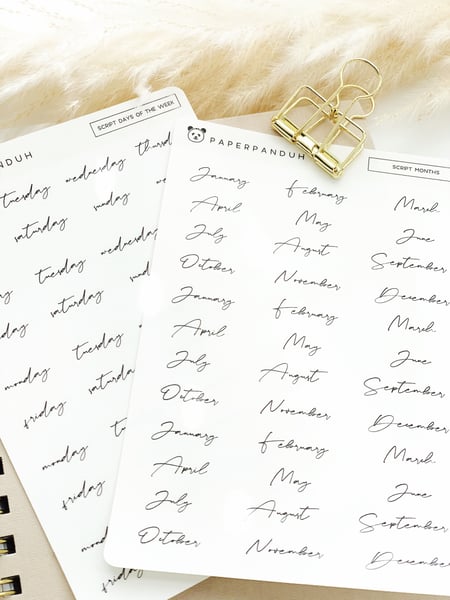 SCRIPT DAYS OF THE WEEK
tuesday wednesday thursd
saturday sunday
tuesday wednesday
saturday
monday tuesday
friday saturda
monday
friday
monday
friday
PAPERPANDUH
SCRIPT MONTHS
January February March
April May June
July August September
October November December
January February March
April May June
July August September
October November December
January February March
April May June
July August September
October November December